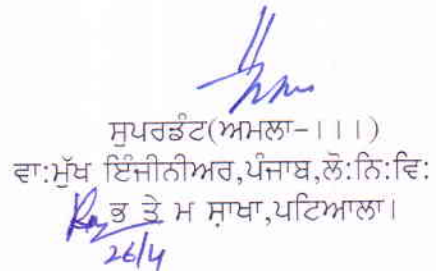 ਸੁਪਰਡੰਟ(ਅਮਲਾ-।।।)
ਵਾ:ਮੁੱਖ ਇੰਜੀਨੀਅਰ,ਪੰਜਾਬ,ਲੋ:ਨਿ:ਵਿ:
ਭ ਤੇ ਮ ਸ਼ਾਖਾ,ਪਟਿਆਲਾ।
26/4